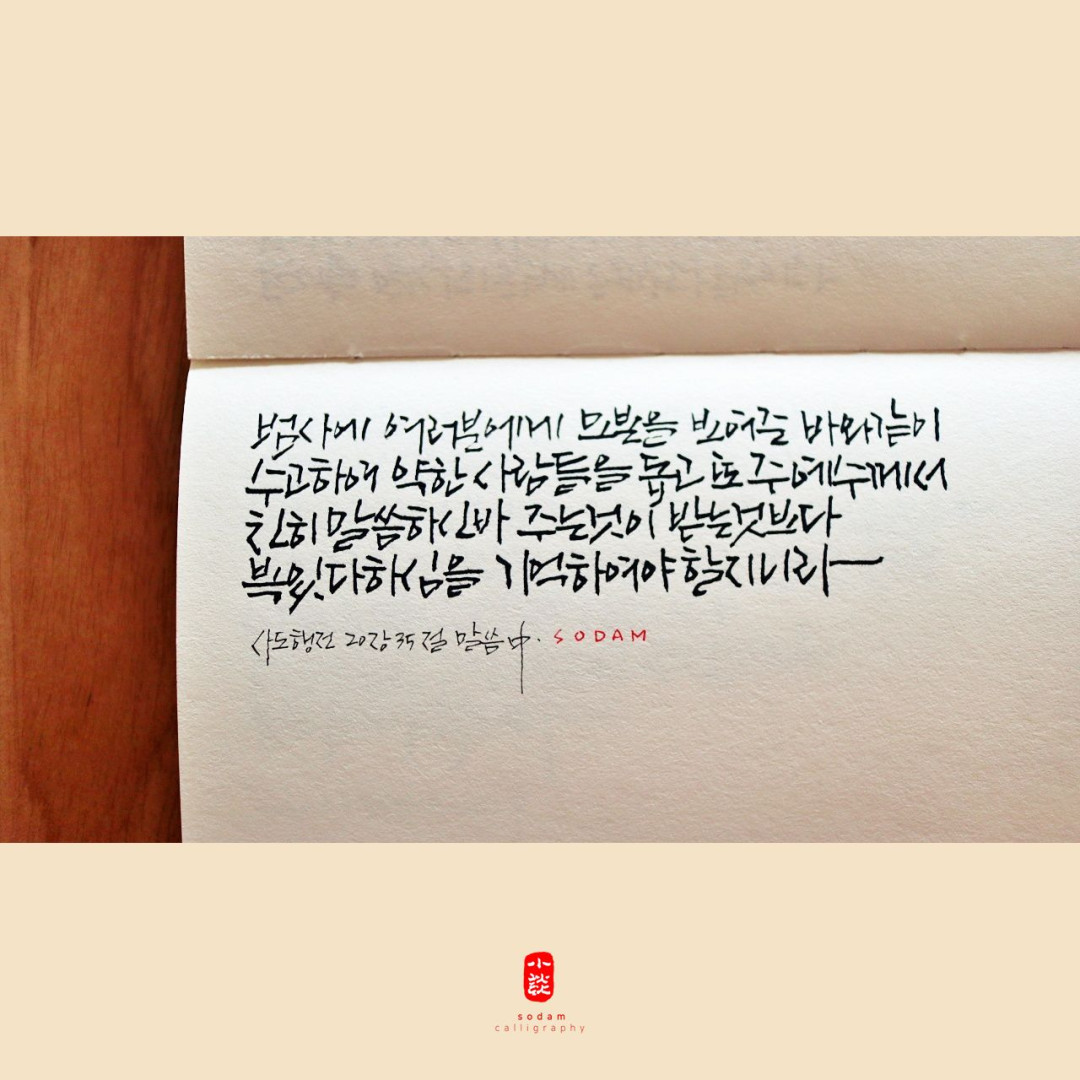 범사에 여러분에게 모본을 보여준 바와같이
수고하여 약한 사람들을 돕고 또 주 예수께서
친히 말씀하신바 주는것이 받는것보다
복이 있다하심을 기억하여야 할지니라
사도행전 20장 35절 말씀 中. SODAM
小談
sodam
calligraphy